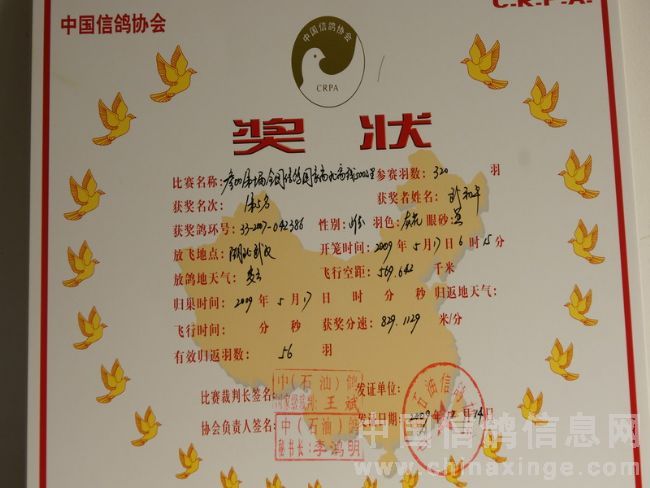 C.R.P.A.
中国信鸽协会
中国信鸽协会
CRPA
奖状
比赛名称: 参赛羽数: 320 羽
获奖名次: 第5名 获奖者姓名:
获奖鸽环号: 33-2007-042386 性别: 羽色: 眼砂: 黄
放飞地点: 湖北武汉 开笼时间: 2009 年 5 月 17 日 6 时 15 分
放鸽地天气: 多云 飞行空距: 569.642 千米
归巢时间: 2009 年 5 月 17 日 时 分 秒 归返地天气:
飞行时间: 分 秒 获奖分速: 829.1129 米/分
有效归返羽数: 56 羽
比赛裁判长签名: 中(石油)鸽 王斌 发证单位: 石油信
协会负责人签名: 中(石油)鸽 秘书长: 李鸿明 发证日期: 2009 年 月 日
中国信鸽信息网
www.chinaxinge.com